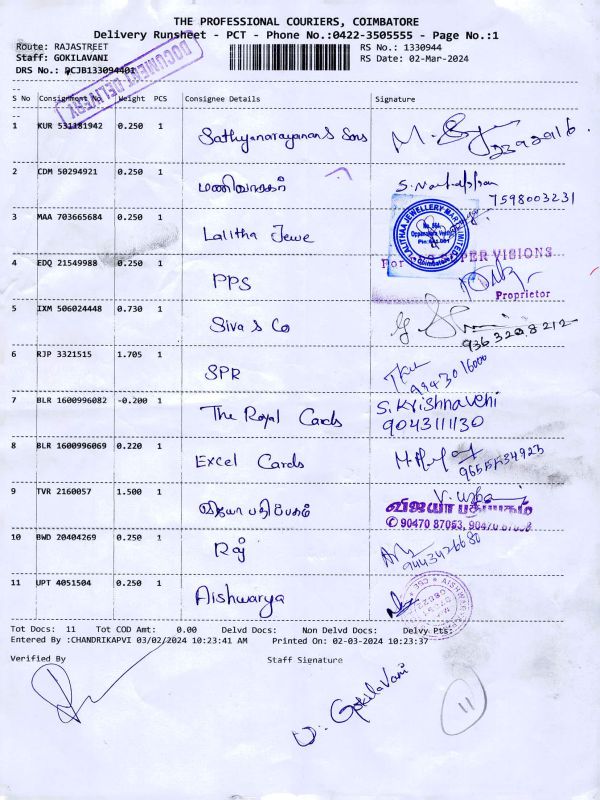 THE PROFESSIONAL COURIERS, COIMBATORE
Delivery Runsheet - PCT - Phone No.:0422-3505555 - Page No.:1
Route: RAJASTREET RS No.: 1330944
Staff: GOKILAVANI RS Date: 02-Mar-2024
DRS No.: PCJB133094401
DOCUMENT DELIVERY
S No Consignment No. Weight PCS Consignee Details Signature
1 KUR 531181942 0.250 1 Sathyanarayanan & Sons
2 CDM 50294921 0.250 1 மணிவாசகர் 7598003231
3 MAA 703665684 0.250 1 Lalitha Jewe
LALITHAA JEWELLERY MART LIMITED
Coimbatore
4 EDQ 21549988 0.250 1 PPS
For SUPER VISIONS
Proprietor
5 IXM 506024448 0.730 1 Siva & Co 9363208212
6 RJP 3321515 1.705 1 SPR 9943016000
7 BLR 1600996082 -0.200 1 The Royal Cards S. Krishnaveni
9043111130
8 BLR 1600996069 0.220 1 Excel Cards
9 TVR 2160057 1.500 1 விஜயா பதிப்பகம்
விஜயா பதிப்பகம்
✆ 90470 87053, 90470 87058
10 BWD 20404269 0.250 1 9443426680
11 UPT 4051504 0.250 1 Aishwarya
Tot Docs: 11 Tot COD Amt: 0.00 Delvd Docs: Non Delvd Docs: Delvy Pts:
Entered By :CHANDRIKAPVI 03/02/2024 10:23:41 AM Printed On: 02-03-2024 10:23:37
Verified By Staff Signature
Gokilavani
11